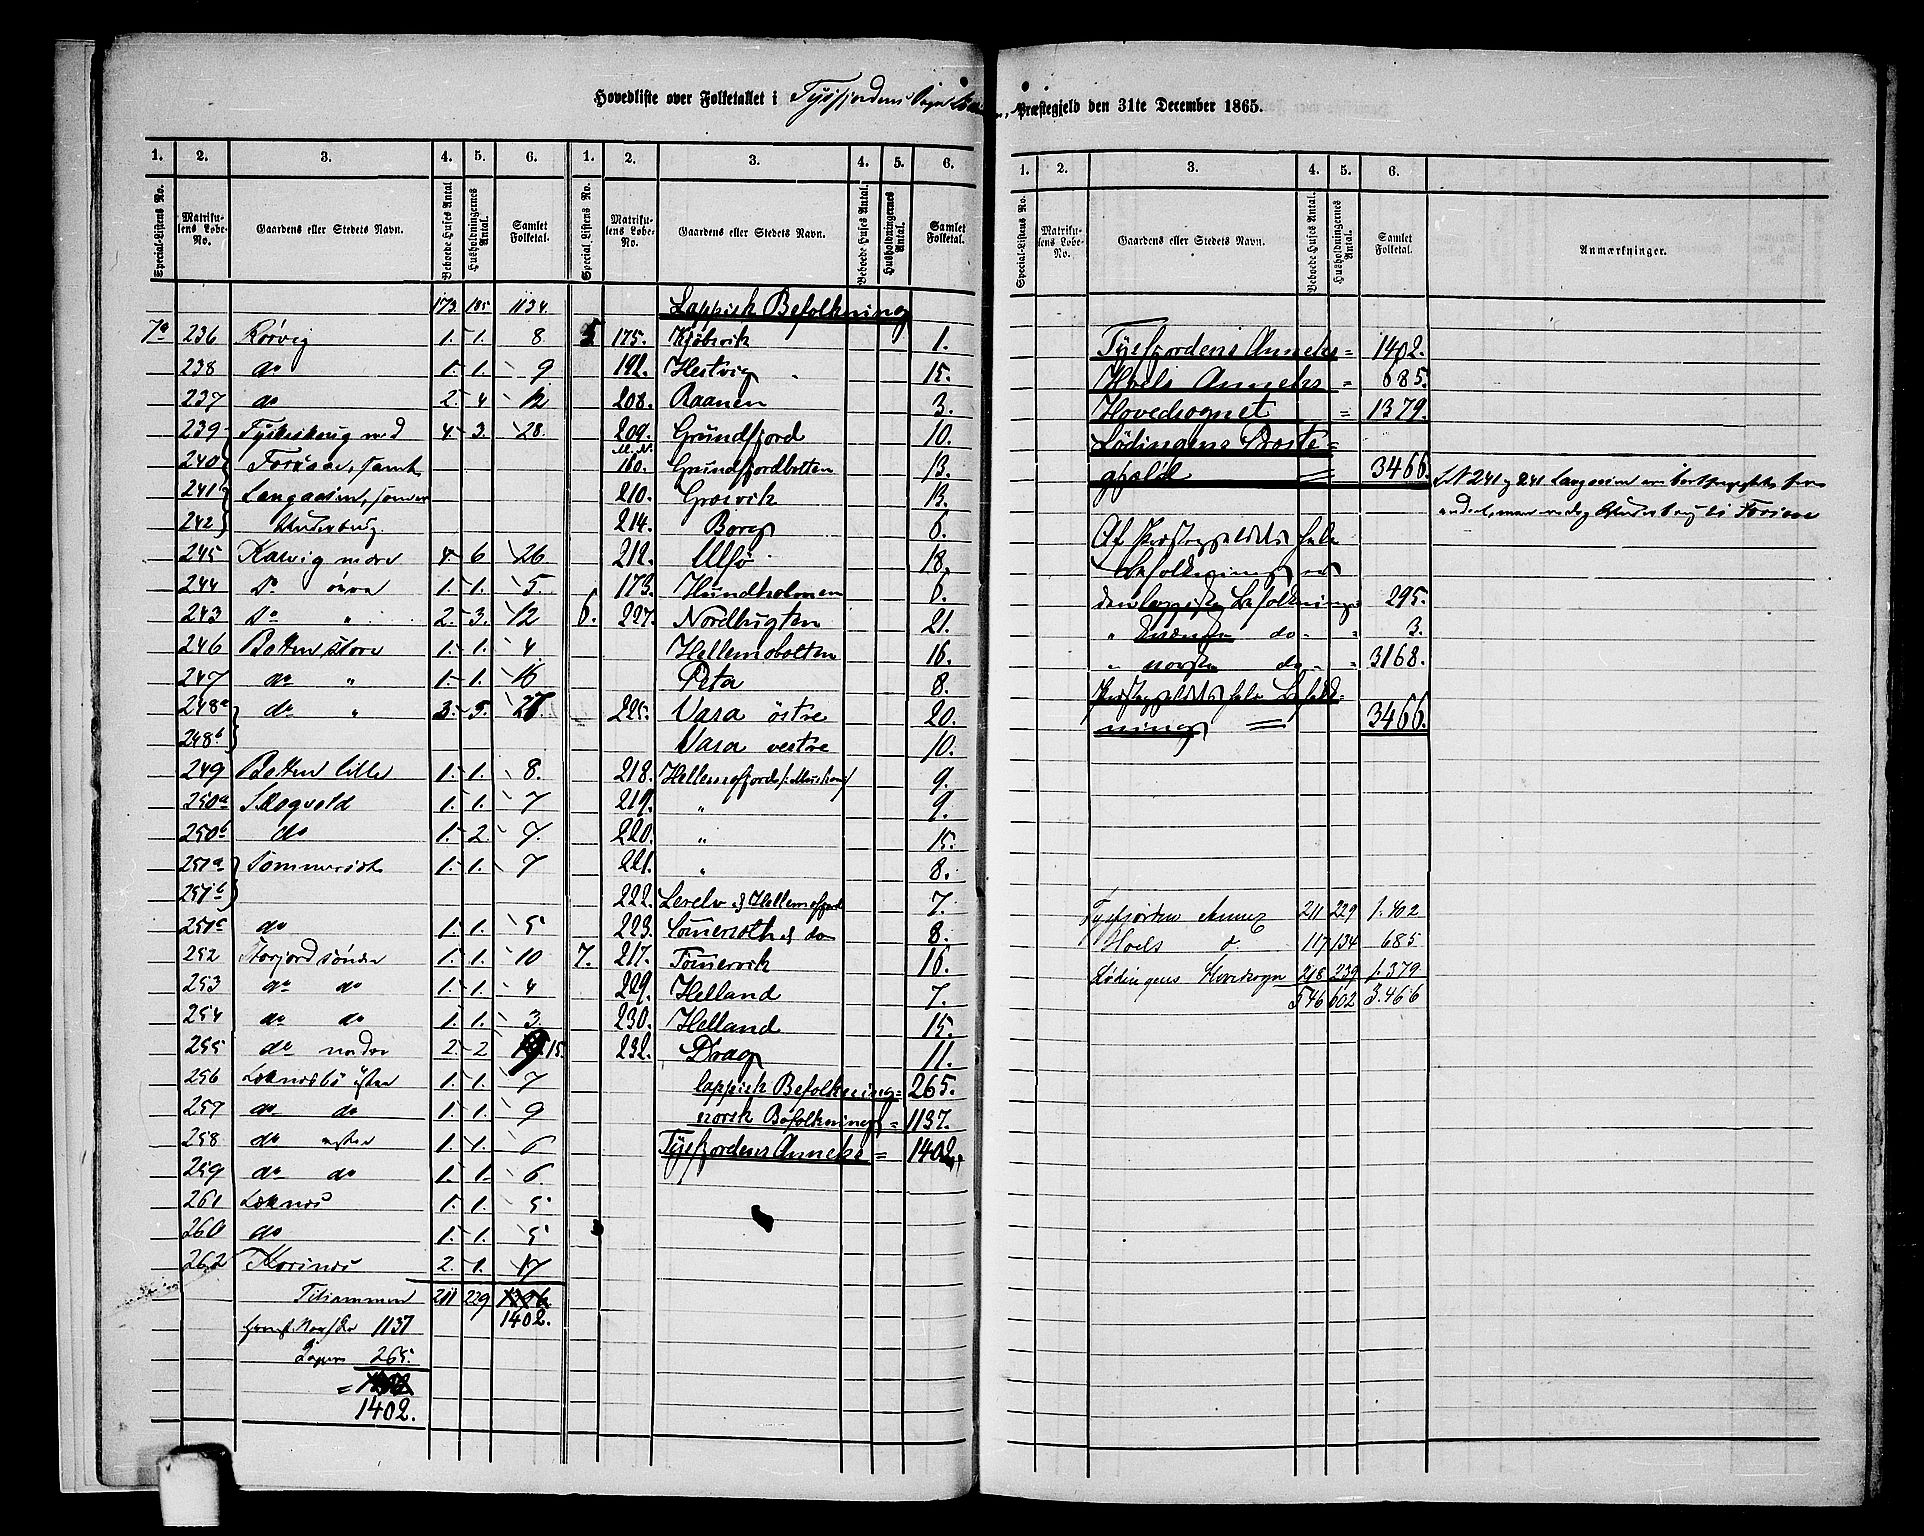 Hovedliste over Folketallet i Tysfjordens Sogn
Præstegjeld den 31te December 1865.
1. 2. 3. 4. 5. 6. 1. 2. 3. 4. 5. 6.
Special-Listens No. Matrikulens Løbe-No. Gaardens eller Stedets Navn. Beboede Huses Antal Husholdningernes Antal. Samlet Folketal. Special Listens No. Matrikulens Løbe-No. Gaardens eller Stedets Navn. Beboede Huses Antal. Husholdningernes Antal. Samlet Folketal.
173. 185 1134.
7a 236 Korvig 1. 1. 8.
238 do 1. 1. 9
237 do 2. 4 12
239 Tyskskaug med 4. 3. 28.
240 Forsaae, samt
241 Langaasen, samt
242
245 Kalvig nedre 4. 6 26
244 Do øvre 1. 1. 5.
243 Do " 2. 3. 12
246 Botten store 1. 1. 4
247 do " 1. 1. 16
248a do " 3. 5. 27.
248b
249 Botten lille 1. 1. 8.
250a Skogvold 1. 1. 7
250b do 1. 2. 7.
251a Sommerset 1. 1. 7
251b
251c do 1. 1. 5
252 Storjord søndre 1. 1. 10
253 do do 1. 1. 4
254 do do 1. 1. 3.
255 do nordre 2. 2 15.
256 Leknesbø østre 1. 1. 7
257 do do 1. 1. 9
258 do vestre 1. 1. 6
259 do do 1. 1. 6.
261 Leknes 1. 1. 5
260 do 1. 1. 5
262 Korsnes 2. 1. 17
Tilsammen 211 229 1396
1402.
Norske 1137
Lapper 265.
= 1402
1402.
Lappisk Befolkning
5 175. Kjöbsvik 1.
192. Hestvig 15.
208. Raanen 3.
209. Grundfjord 10.
M. N. 160. Grundfjordbotten 13.
210. Grosvik 13.
214. Borg 6.
212. Ulsö 18.
173. Hundholmen 6.
6. 227. Nordbugten 21.
Hellemobotten 16.
Peta 8.
225. Vasa östre 20.
Vasa vestre 10.
218. Hellemofjord 9.
219. " 9.
220. " 15.
221. " 8.
222. Lerelv i Hellemofjord 7.
223. Sömerseth i do 8.
7. 217. Tömervik 16.
229. Helland 7.
230. Helland 15.
232. Drag 11.
lappisk Befolkning = 265.
norsk Befolkning = 1137.
Tysfjordens Anneks = 1402.
1. 2. 3. 4. 5. 6.
Special-Listens No. Matrikulens Løbe-No. Gaardens eller Stedets Navn. Beboede Huses Antal. Husholdningernes Antal. Samlet Folketal. Anmærkninger.
Tysfjordens Anneks = 1402.
Hoels Anneks = 685.
Hovedsognet = 1379.
Lödingens Præste=
gjeld = 3466.
L. N 241 og 242 Langaasen
Af Præstegjeldets hele
Befolkning
den lappiske Befolkning 295.
" kvænske do - " 3.
" norske do - " 3168.
Præstegjeldets hele Befolk=
ning = 3466.
Tysfjorden Annex 211 229 1.402
Hoels d. 117 134 685
Lødingens Hovedsogn 218 239 1.379
546 602 3.466